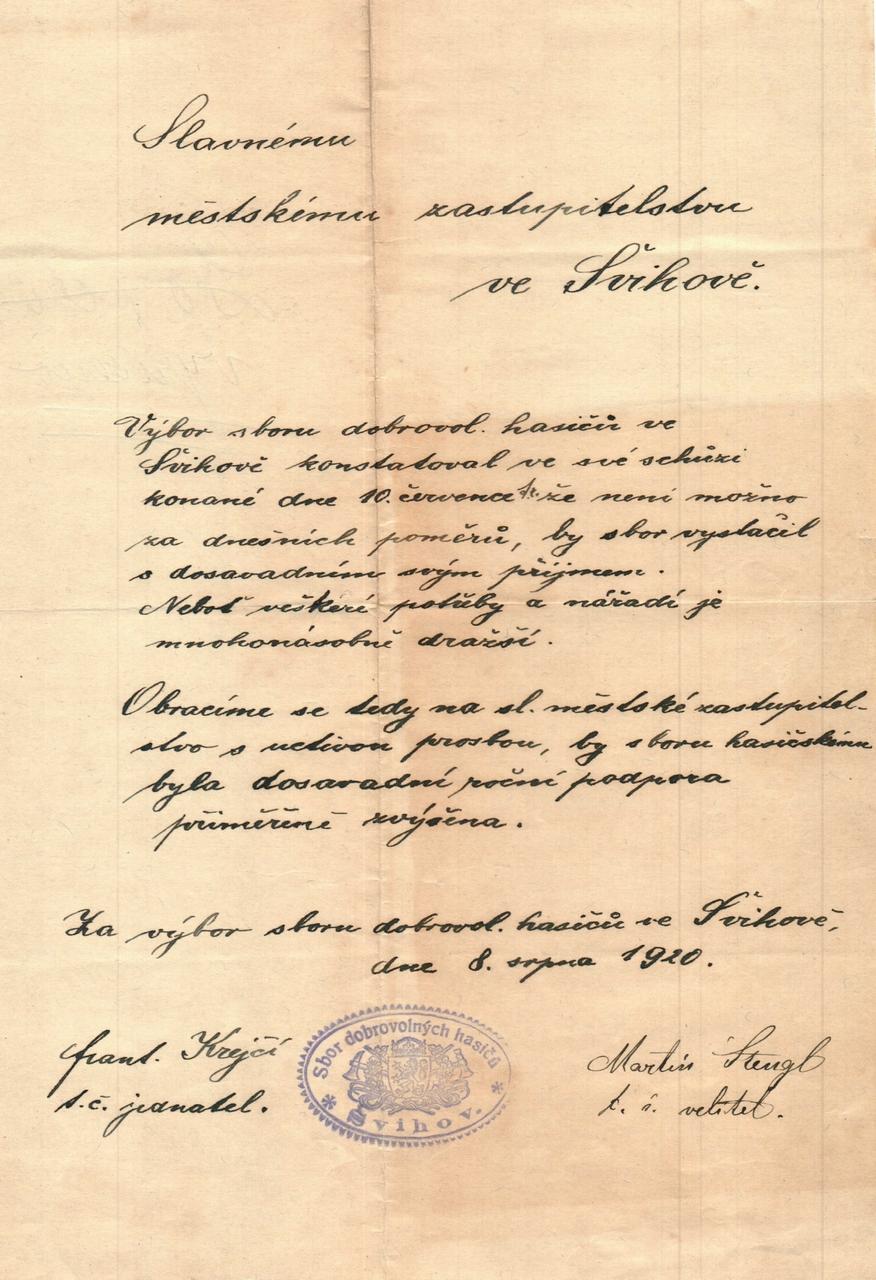 Slavnému
městskému zastupitelstvu
ve Švihově.
Výbor sboru dobrovol. hasičů ve
Švihově konstatoval ve své schůzi
konané dne 10. července t.r. že není možno
za dnešních poměrů, by sbor vystačil
s dosavadním svým příjmem.
Neboť veškeré potřeby a nářadí je
mnohonásobně dražší.
Obracíme se tedy na sl. městské zastupitel-
stvo s uctivou prosbou, by sboru hasičskému
byla dosavadní roční podpora
přiměřeně zvýšena.
Za výbor sboru dobrovol. hasičů ve Švihově,
dne 8. srpna 1920.
frant. Krejčí
t.č. jednatel.
Sbor dobrovolných hasičů
* Švihov. *
Martin Stengl
t. č. velitel.